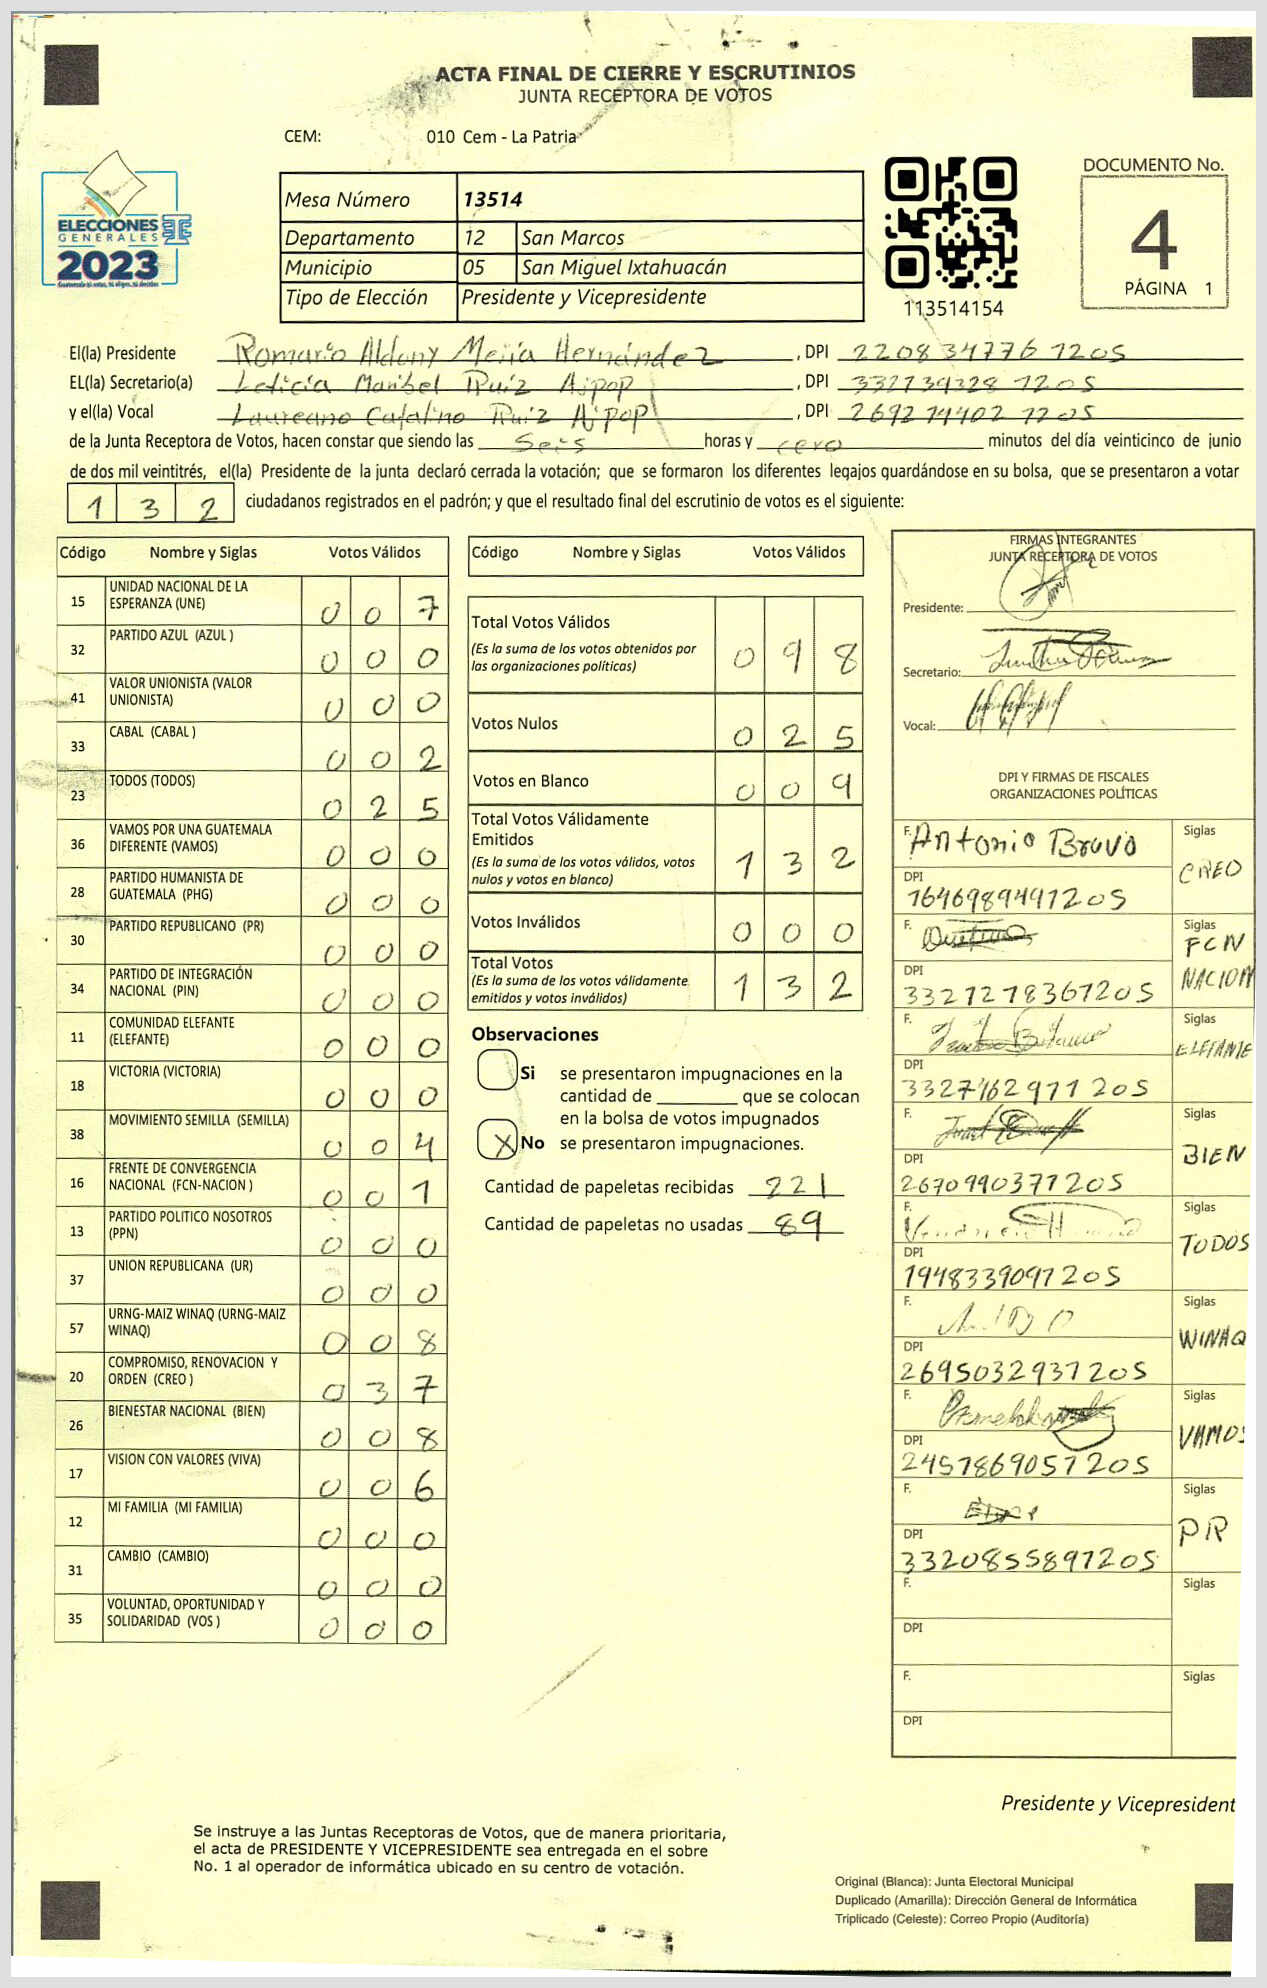 ACTA FINAL DE CIERRE Y ESCRUTINIOS
JUNTA RECEPTORA DE VOTOS
CEM: 010 Cem - La Patria
ELECCIONES
GENERALES
2023
Guatemala tú votas, tú eliges, tú decides
Mesa Número 13514
Departamento 12 San Marcos
Municipio 05 San Miguel Ixtahuacán
Tipo de Elección Presidente y Vicepresidente
113514154
DOCUMENTO No.
4
PÁGINA 1
El(la) Presidente Romario Aldony Mejía Hernández, DPI 2208347761205
EL(la) Secretario(a) Leticia Maribel Ruiz Ajpop, DPI 3327393281205
y el(la) Vocal Laureano Catalino Ruiz Ajpop, DPI 2692744021205
de la Junta Receptora de Votos, hacen constar que siendo las Seis horas y cero minutos del día veinticinco de junio
de dos mil veintitrés, el(la) Presidente de la junta declaró cerrada la votación; que se formaron los diferentes legajos guardándose en su bolsa, que se presentaron a votar
1 3 2 ciudadanos registrados en el padrón; y que el resultado final del escrutinio de votos es el siguiente:
Código Nombre y Siglas Votos Válidos
15 UNIDAD NACIONAL DE LA ESPERANZA (UNE) 0 0 7
32 PARTIDO AZUL (AZUL ) 0 0 0
41 VALOR UNIONISTA (VALOR UNIONISTA) 0 0 0
33 CABAL (CABAL ) 0 0 2
23 TODOS (TODOS) 0 2 5
36 VAMOS POR UNA GUATEMALA DIFERENTE (VAMOS) 0 0 0
28 PARTIDO HUMANISTA DE GUATEMALA (PHG) 0 0 0
30 PARTIDO REPUBLICANO (PR) 0 0 0
34 PARTIDO DE INTEGRACIÓN NACIONAL (PIN) 0 0 0
11 COMUNIDAD ELEFANTE (ELEFANTE) 0 0 0
18 VICTORIA (VICTORIA) 0 0 0
38 MOVIMIENTO SEMILLA (SEMILLA) 0 0 4
16 FRENTE DE CONVERGENCIA NACIONAL (FCN-NACION ) 0 0 1
13 PARTIDO POLITICO NOSOTROS (PPN) 0 0 0
37 UNION REPUBLICANA (UR) 0 0 0
57 URNG-MAIZ WINAQ (URNG-MAIZ WINAQ) 0 0 8
20 COMPROMISO, RENOVACION Y ORDEN (CREO ) 0 3 7
26 BIENESTAR NACIONAL (BIEN) 0 0 8
17 VISION CON VALORES (VIVA) 0 0 6
12 MI FAMILIA (MI FAMILIA) 0 0 0
31 CAMBIO (CAMBIO) 0 0 0
35 VOLUNTAD, OPORTUNIDAD Y SOLIDARIDAD (VOS ) 0 0 0
Código Nombre y Siglas Votos Válidos
Total Votos Válidos 0 9 8
(Es la suma de los votos obtenidos por
las organizaciones políticas)
Votos Nulos 0 2 5
Votos en Blanco 0 0 9
Total Votos Válidamente
Emitidos 1 3 2
(Es la suma de los votos válidos, votos
nulos y votos en blanco)
Votos Inválidos 0 0 0
Total Votos 1 3 2
(Es la suma de los votos válidamente
emitidos y votos inválidos)
Observaciones
Si se presentaron impugnaciones en la
cantidad de ________ que se colocan
en la bolsa de votos impugnados
X No se presentaron impugnaciones.
Cantidad de papeletas recibidas 221
Cantidad de papeletas no usadas 89
FIRMAS INTEGRANTES
JUNTA RECEPTORA DE VOTOS
Presidente:
Secretario:
Vocal:
DPI Y FIRMAS DE FISCALES
ORGANIZACIONES POLÍTICAS
F. Antonio Bravo Siglas CREO
DPI 1646989491205
F. Siglas FCN NACION
DPI 3327278361205
F. Siglas ELEFANTE
DPI 3327462971205
F. Siglas BIEN
DPI 2670990371205
F. Siglas TODOS
DPI 1948339091205
F. Siglas WINAQ
DPI 2695032931205
F. Siglas VAMOS
DPI 2457869051205
F. Siglas PR
DPI 3320855891205
F. Siglas
DPI
F. Siglas
DPI
Presidente y Vicepresident
Se instruye a las Juntas Receptoras de Votos, que de manera prioritaria,
el acta de PRESIDENTE Y VICEPRESIDENTE sea entregada en el sobre
No. 1 al operador de informática ubicado en su centro de votación.
Original (Blanca): Junta Electoral Municipal
Duplicado (Amarilla): Dirección General de Informática
Triplicado (Celeste): Correo Propio (Auditoría)